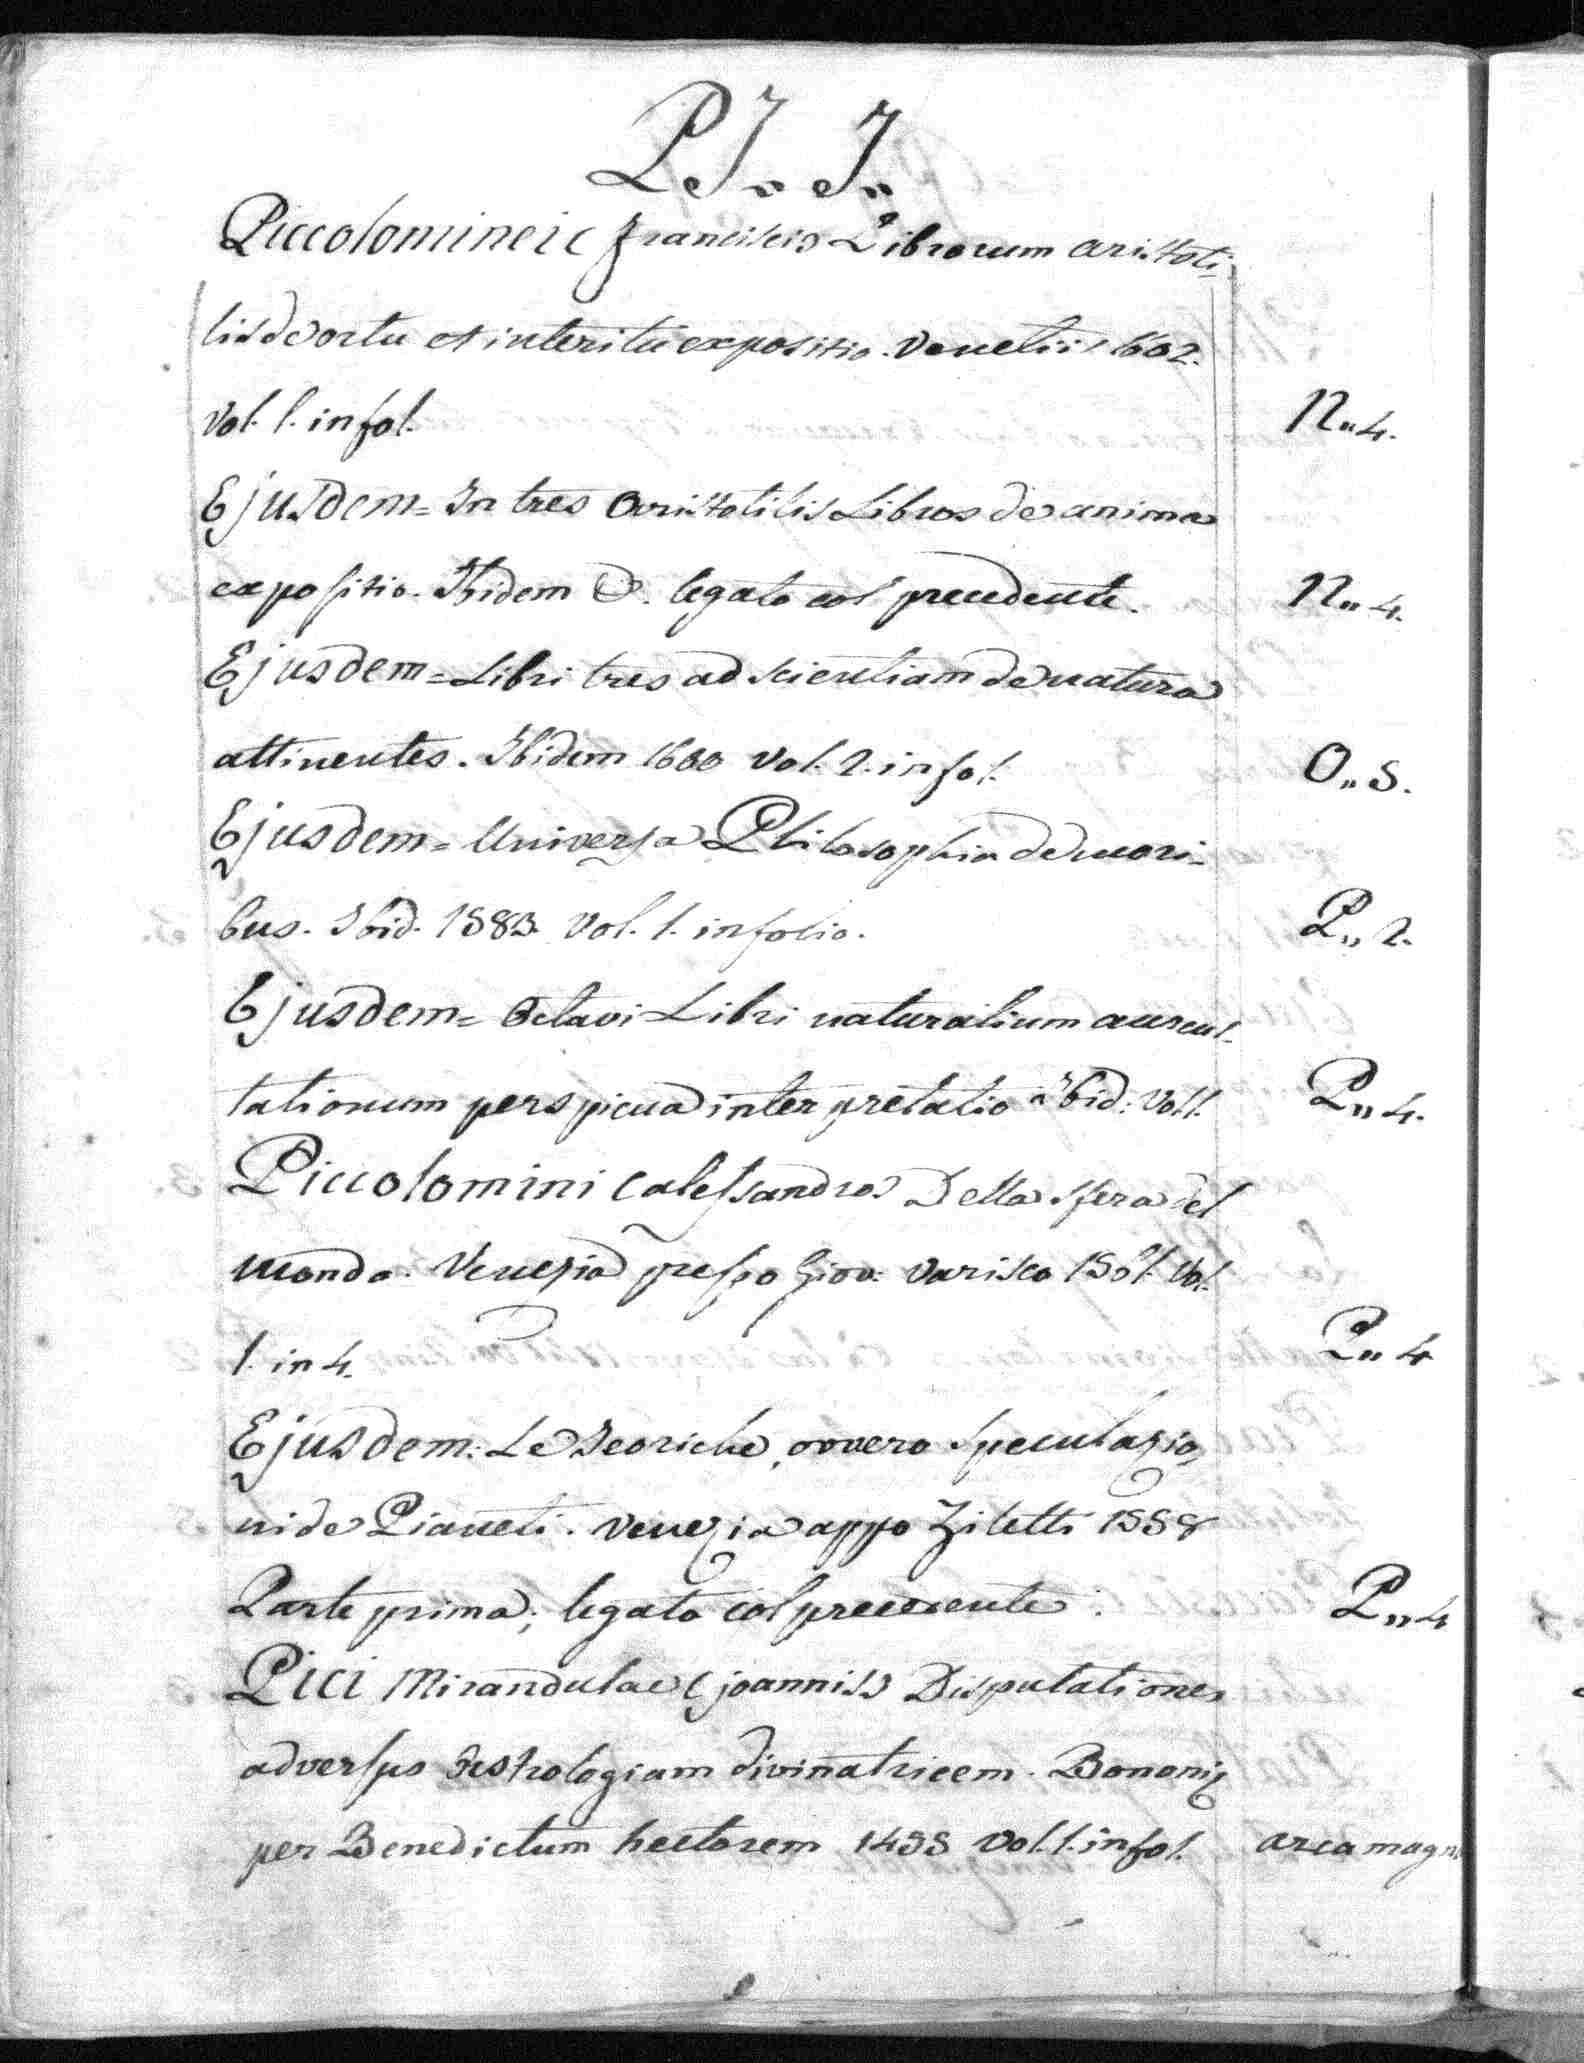 P I „ I „
Piccolominei (Francisci) Librorum Aristoti-
lis de ortu et interitu expositio. Venetiis 1602.
Vol. 1. in fol. N„ 4.
Ejusdem = In tres Aristotilis Libros de anima
expositio. Ibidem &. legato col precedente. N„ 4.
Ejusdem = Libri tres ad scientiam de natura
attinentes. Ibidem 1600 Vol. 2. in fol. O„ 5.
Ejusdem = Universa Philosophia de mori-
bus. Ibid. 1583. Vol. 1. in folio. P„ 2.
Ejusdem = Octavi Libri naturalium auscul-
tationum perspicua interpretatio Ibid: Vol 1. P„ 4.
Piccolomini (Alessandro) Della sfera del
mondo. Venezia presso Giov: Varisco 1561. Vol.
1. in 4. P„ 4
Ejusdem: Le Teoriche, ovvero speculazio-
ni de Pianeti. Venezia appo Ziletti 1558
Parte prima; legato col precedente. P„ 4
Pici Mirandulae (Joannis) Disputationes
adversus Astrologiam divinatricem. Bononię
per Benedictum hectorem 1495 Vol. 1. in fol. arca magn